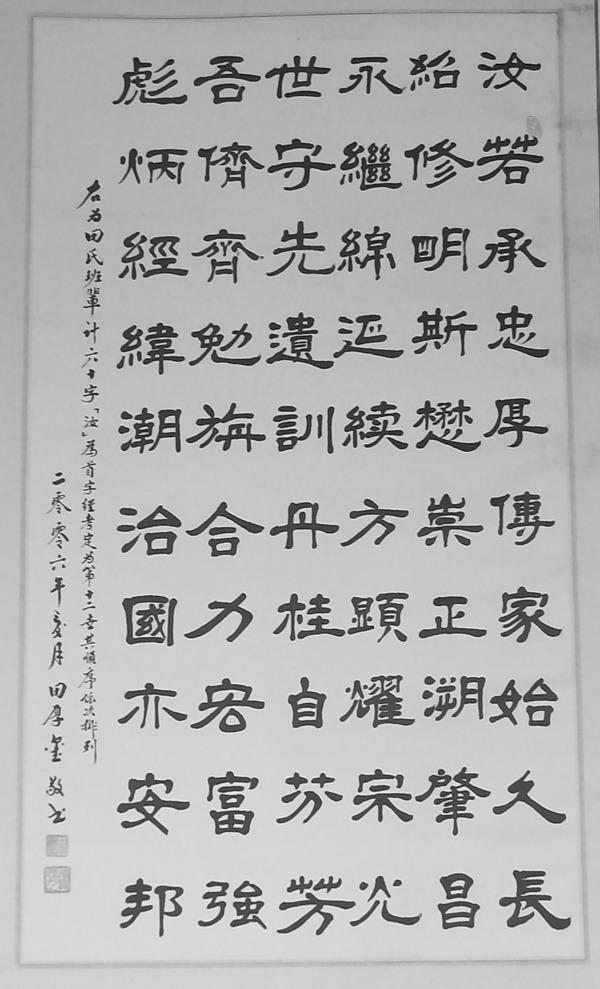 汝若承忠厚傳家始久長
紹修明斯懋崇正溯肇昌
永繼綿延续方顕耀宗光
世守先遺訓丹桂自芬芳
吾儕齊勉旃合力宏富強
彪炳經緯潮治國亦安邦
右为田氏班輩计六十字「汝」為首字經考定为第十二世其順序依次排列
二零零六年夏月田厚金敬书